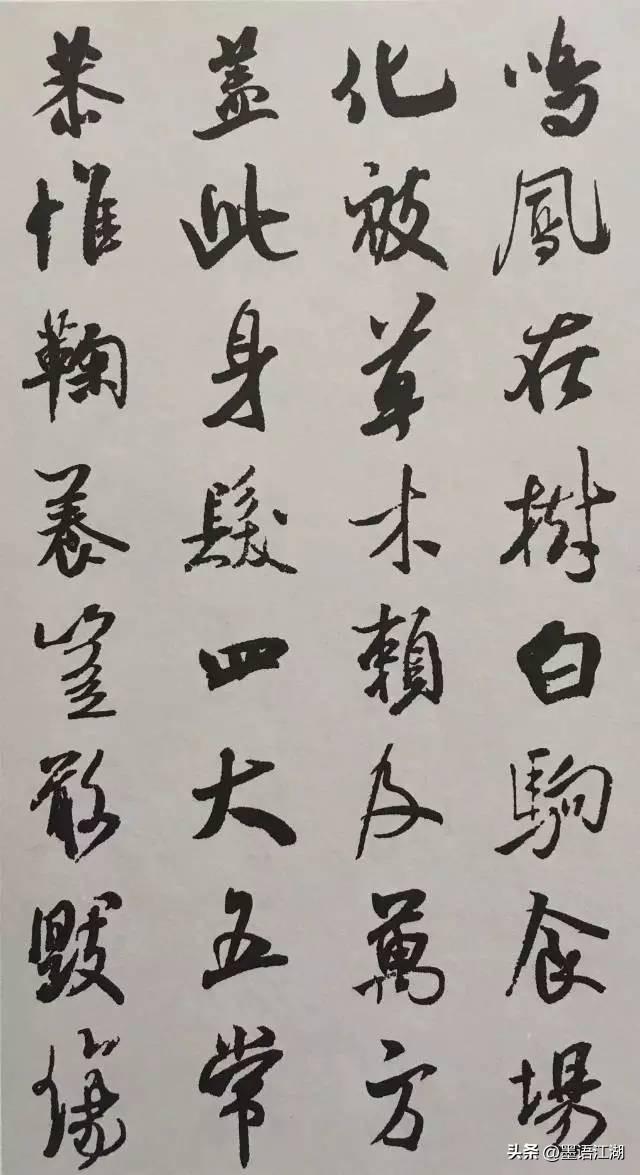 鳴鳳在樹白駒食場
化被草木賴及萬方
蓋此身髮四大五常
恭惟鞠養豈敢毀傷
头条 @墨语江湖